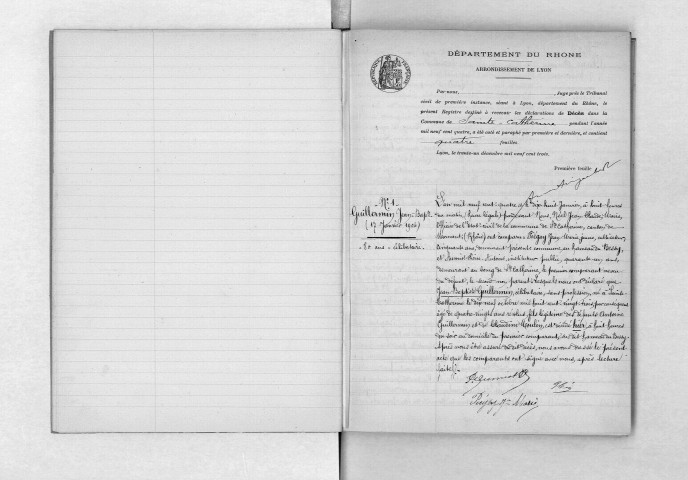 DÉPARTEMENT DU RHONE
ARRONDISSEMENT DE LYON
Par nous, Juge près le Tribunal
civil de première instance, séant à Lyon, département du Rhône, le
présent Registre destiné à recevoir les déclarations de Décès dans la
Commune de Sainte-Catherine pendant l'année
mil neuf cent quatre, a été coté et paraphé par première et dernière, et contient
quatre feuilles.
Lyon, le trente-un décembre mil neuf cent trois.
Première feuille
N° 1.
Guillermin Jean-Bapt.
(17 Janvier 1904)
80 ans - célibataire.
L'an mil neuf cent quatre et le dix-huit Janvier, à huit heures
du matin, (heure légale) par devant Nous, Jean Claude Marie,
Officier de l'état-civil de la commune de Ste Catherine, canton de
Mornant (Rhône) ont comparu Jean Marie, cultivateur,
cinquante ans, demeurant présente commune, au hameau du
et Antoine, instituteur public, quarante un ans,
demeurant au bourg de Ste Catherine, le premier comparant neveu
du défunt, le second non parent, lesquels nous ont déclaré que
Jean Baptiste Guillermin, célibataire, sans profession, né à Sainte
Catherine le dix neuf octobre mil huit cent vingt trois, par conséquent
âgé de quatre-vingts ans révolus, fils légitime des défunts Antoine
Guillermin et de Claudine est décédé hier, à huit heures
du soir au domicile du premier comparant, au dit hameau du
Après nous être assuré du dit décès, nous avons dressé le présent
acte que les comparants ont signé avec nous, après lecture
faite.